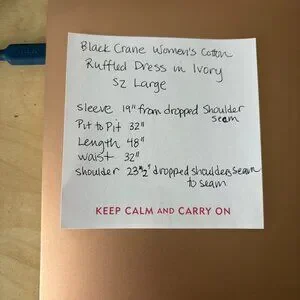 Black Crane Women's Cotton
Ruffled Dress in Ivory
Sz Large
sleeve 19" from dropped shoulder
seam
Pit to Pit 32"
Length 48"
waist 32"
shoulder 23 1/2" dropped shoulder seam
to seam
KEEP CALM AND CARRY ON